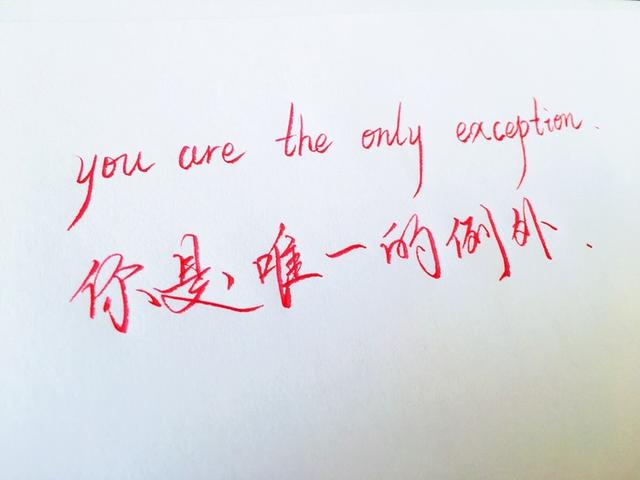 you are the only exception.
你是唯一的例外.